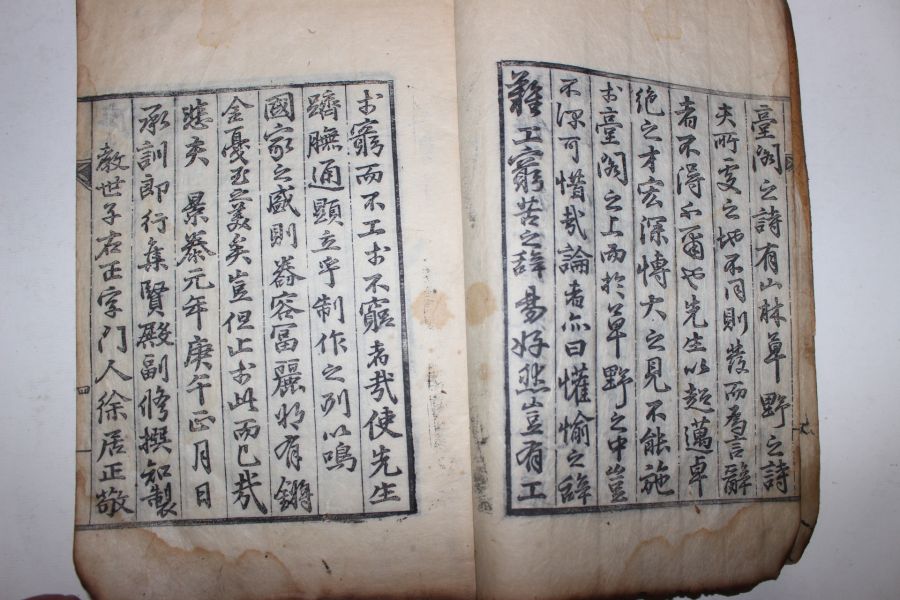 臺閣之詩有山林草野之詩
夫所處之地不同則發而爲言辭
者不得不爾也先生以超邁卓
絶之才宏深博大之見不能施
於臺閣之上而於草野之中豈
不深可惜哉論者亦曰懽愉之辭
難工窮苦之辭易好然豈有工
於窮而不工於不窮者哉使先生
躋膴通顯立乎制作之列以鳴
國家之盛則舂容冨麗將有鏘
金戞玉之美矣豈但止於此而已哉
悲夫 景泰元年庚午正月日
承訓郎行集賢殿副修撰知製
教世子右正字門人徐居正敬
四